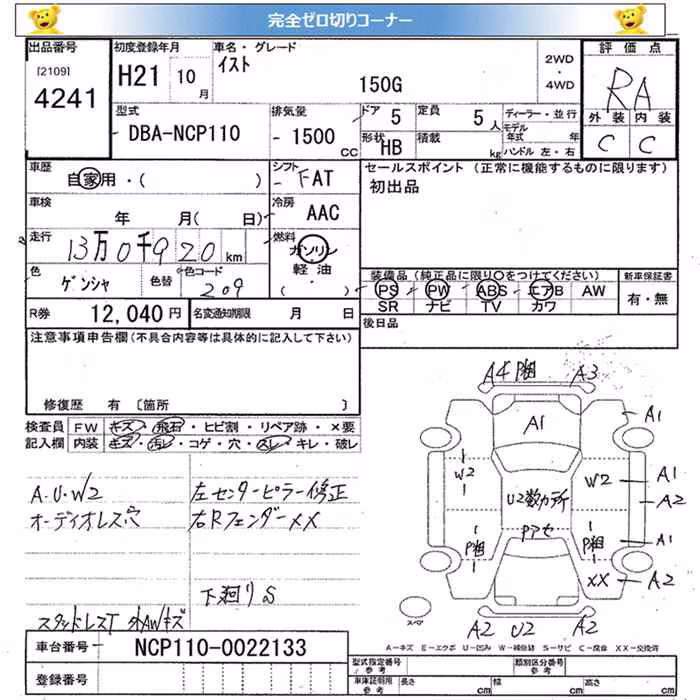 完全ゼロ切りコーナー
出品番号 初度登録年月 車名・グレード 評価点
[2109] 4241 H21 10月 イスト 150G 2WD・4WD RA
外装 内装
C C
型式 排気量 ドア 定員 ディーラー・並行
DBA-NCP110 1500cc 5 5人 モデル年式 年
形状 HB 積載 kg ハンドル 左・右
車歴 シフト セールスポイント (正常に機能するものに限ります)
自家用・( ) FAT 初出品
車検 冷房
年 月( 日) AAC
走行 燃料
13万0千920km ガソリン 軽油・( )
色 色替 色コード 装備品(純正品に限り〇をつけてください) 新車保証書
ゲンシャ 209 PS PW ABS エアB AW 有・無
SR ナビ TV カワ
R券 12,040円 名変通知期限 月 日 後日品
注意事項申告欄(不具合内容等は具体的に記入して下さい)
修復歴 有 〔箇所 〕
検査員 FW キズ・飛石・ヒビ割・リペア跡・×要
記入欄 内装 キズ・汚レ・コゲ・穴・スレ・キレ・破レ
A4 P粗 A3
A1 A1
W2 W2 A1
U2数カ所 A2
Pアセ
P粗 P粗 A1
XX A2
A2 U2 A2
スペア
A.U.W2 左センターピラー修正
オーディオレス穴 右Rフェンダーxx
下廻りS
スタッドレスT 外AWキズ
車台番号 NCP110-0022133
登録番号
A-キズ E-エクボ U-凹み W-補修跡 S-サビ C-腐食 XX-交換済
型式指定番号 参考 類別区分番号 参考
車庫証明用 参考 長さ cm 幅 cm 高さ cm